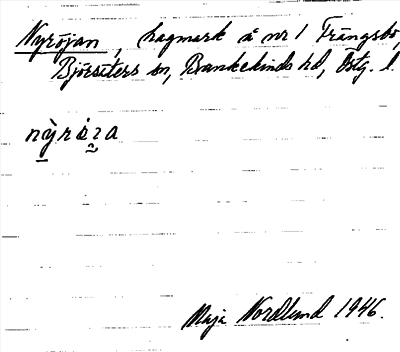 Nyröjan, hagmark å nr 1 Frängsbo,
Björsäters sn, Bankekinds hd, Östg. l.
Maja Nordlund 1946.